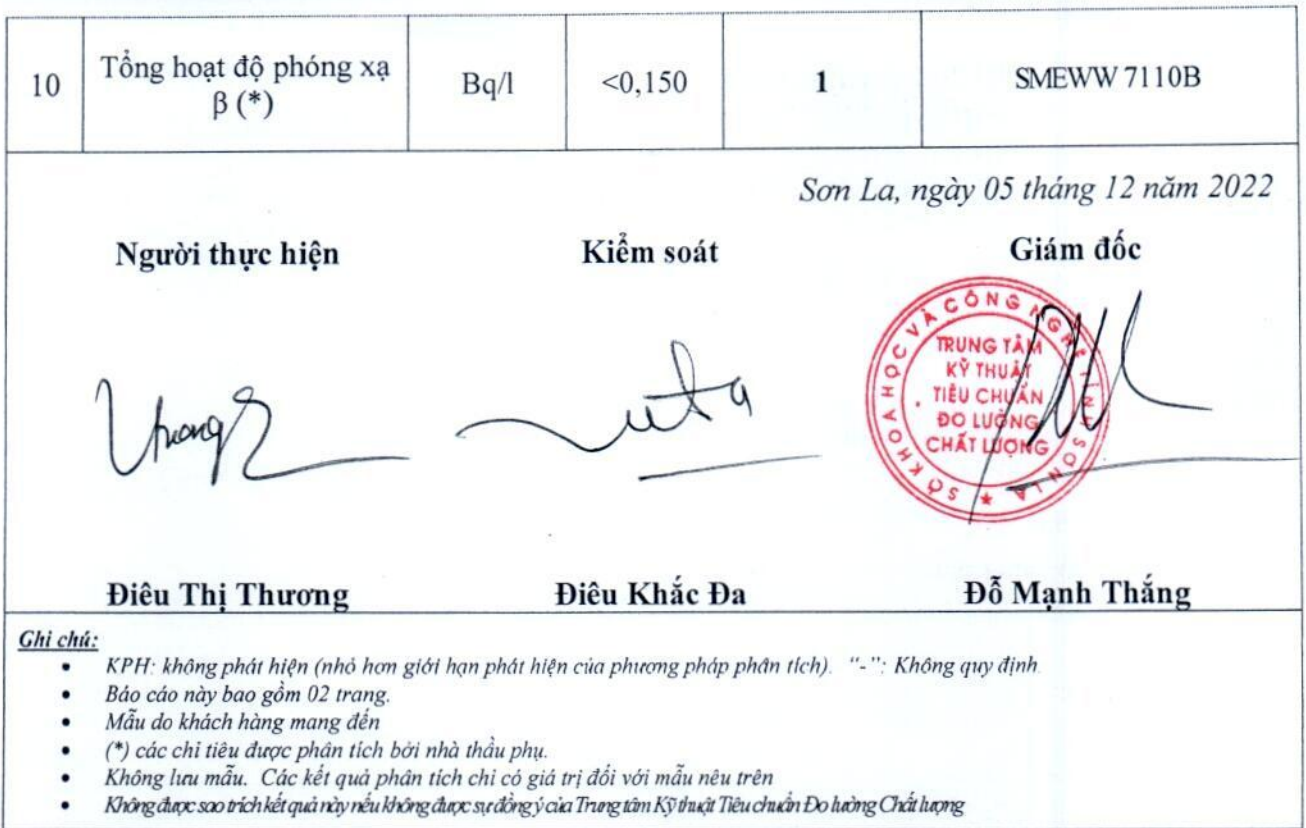 10 Tổng hoạt độ phóng xạ β (*) Bq/l <0,150 1 SMEWW 7110B
Sơn La, ngày 05 tháng 12 năm 2022
Người thực hiện Kiểm soát Giám đốc
SỞ KHOA HỌC VÀ CÔNG NGHỆ TỈNH SƠN LA
TRUNG TÂM
KỸ THUẬT
TIÊU CHUẨN
ĐO LƯỜNG
CHẤT LƯỢNG
Điêu Thị Thương Điêu Khắc Đa Đỗ Mạnh Thắng
Ghi chú:
• KPH: không phát hiện (nhỏ hơn giới hạn phát hiện của phương pháp phân tích). "-": Không quy định.
• Báo cáo này bao gồm 02 trang.
• Mẫu do khách hàng mang đến
• (*) các chỉ tiêu được phân tích bởi nhà thầu phụ.
• Không lưu mẫu. Các kết quả phân tích chỉ có giá trị đối với mẫu nêu trên
• Không được sao trích kết quả này nếu không được sự đồng ý của Trung tâm Kỹ thuật Tiêu chuẩn Đo lường Chất lượng